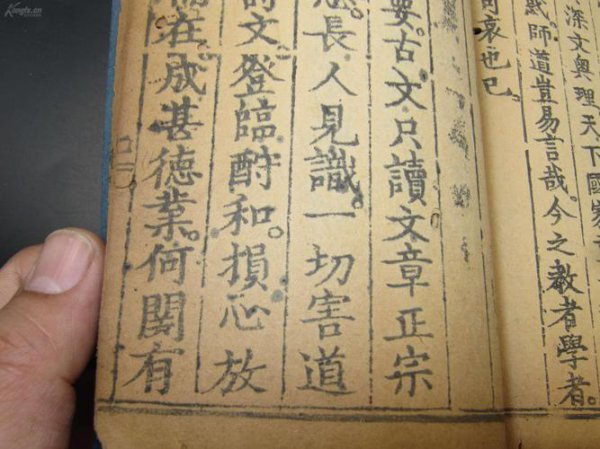 深文奧理天下國
師道豈易言哉。今之教者學者。
哀也已。
要。古文只讀文章正宗
長人見識。一切害道
詩文登臨酬和。損心放
在成甚德業。何關有